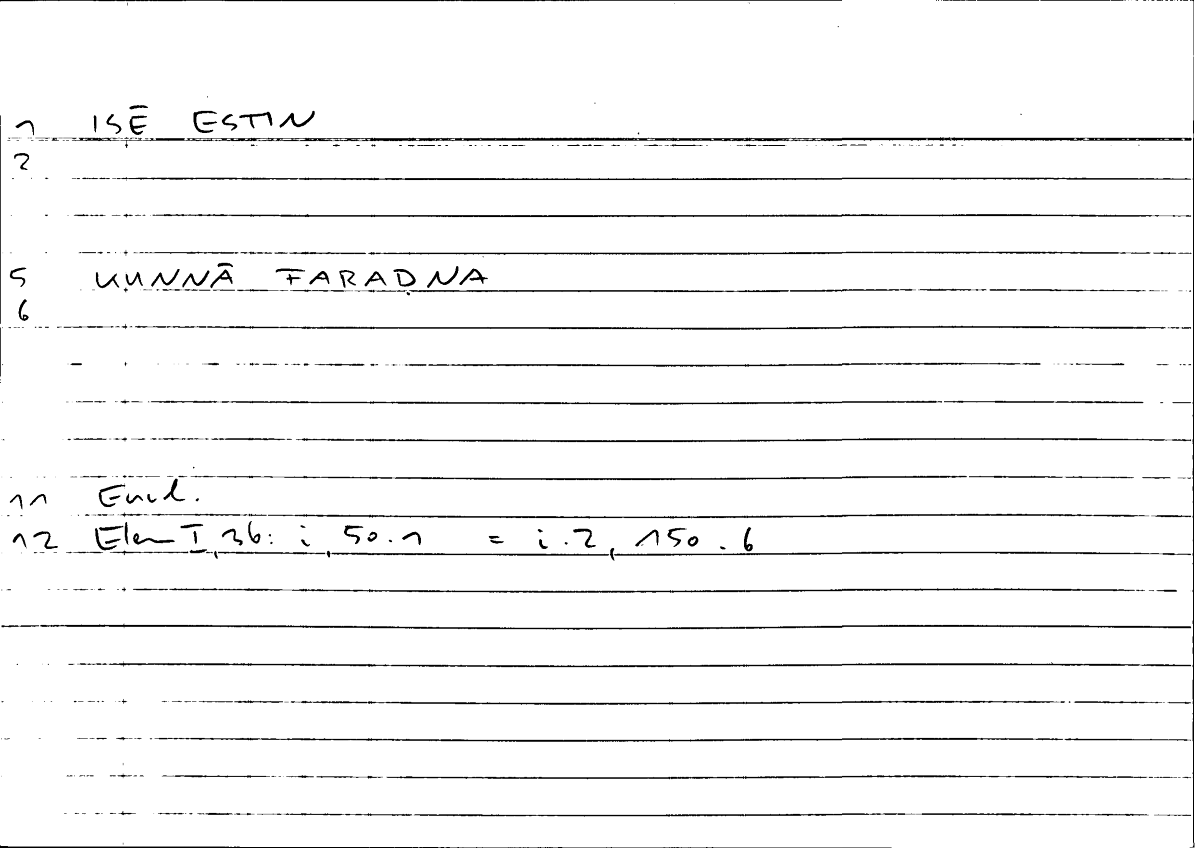 1 ISĒ ESTIN
2
5 KUNNĀ FARAḌNA
6
11 Eucl.
12 Elem I, 36: i, 50.1 = i.2, 150.6